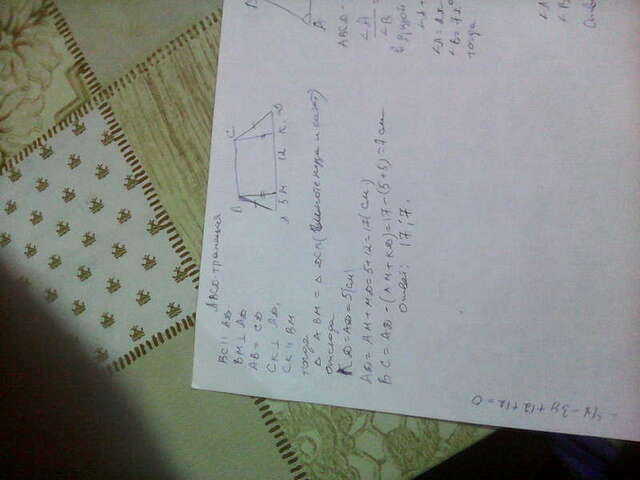 ABCD трапеция
BC || AD
BM ⊥ AD
AB = CD
CK ⊥ AD,
CK || BM
тогда
Δ ABM = Δ DCK (гипотенуза и катет)
отсюда
KD = AD = 5(см)
AD = AM + MD = 5 + 12 = 17(см)
BC = AD - (AM + KD) = 17 - (5 + 5) = 7 см
Ответ: 17; 7.
B C
A 5 M 12 K D
A
ABCD -
∠A
∠B
∠A +
тогда
∠A
∠B
-4x - 3y + 12 + 12 = 0